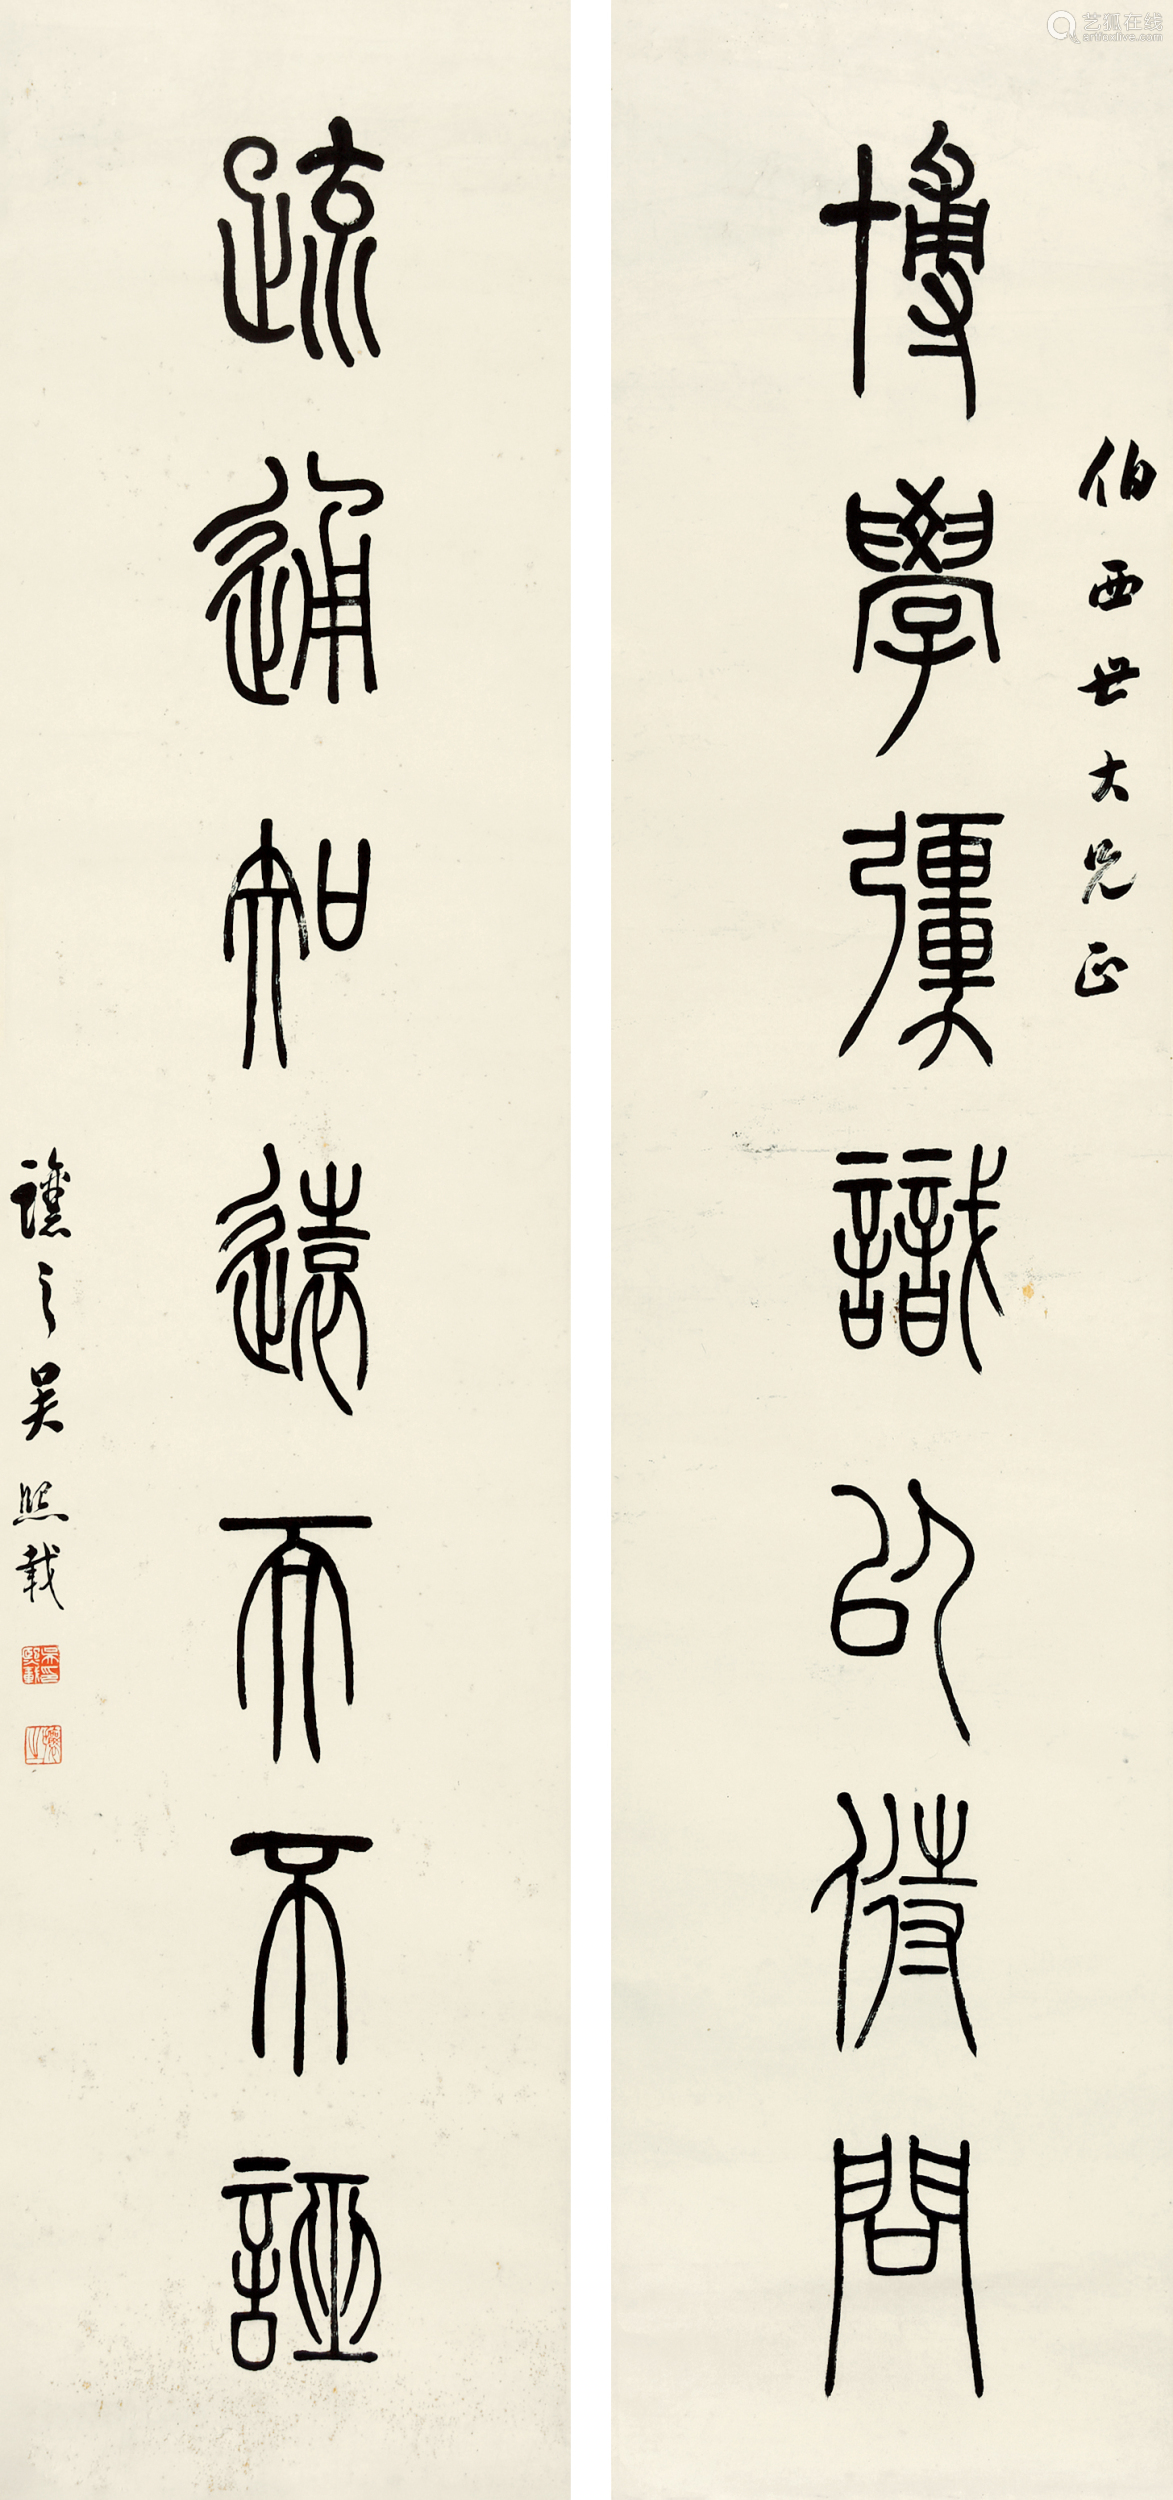 伯西世大兄正
博學彊識以待問
疏通知遠而不誣
讓之吳熙載
吳熙載印
艺狐在线
artfoxlive.com